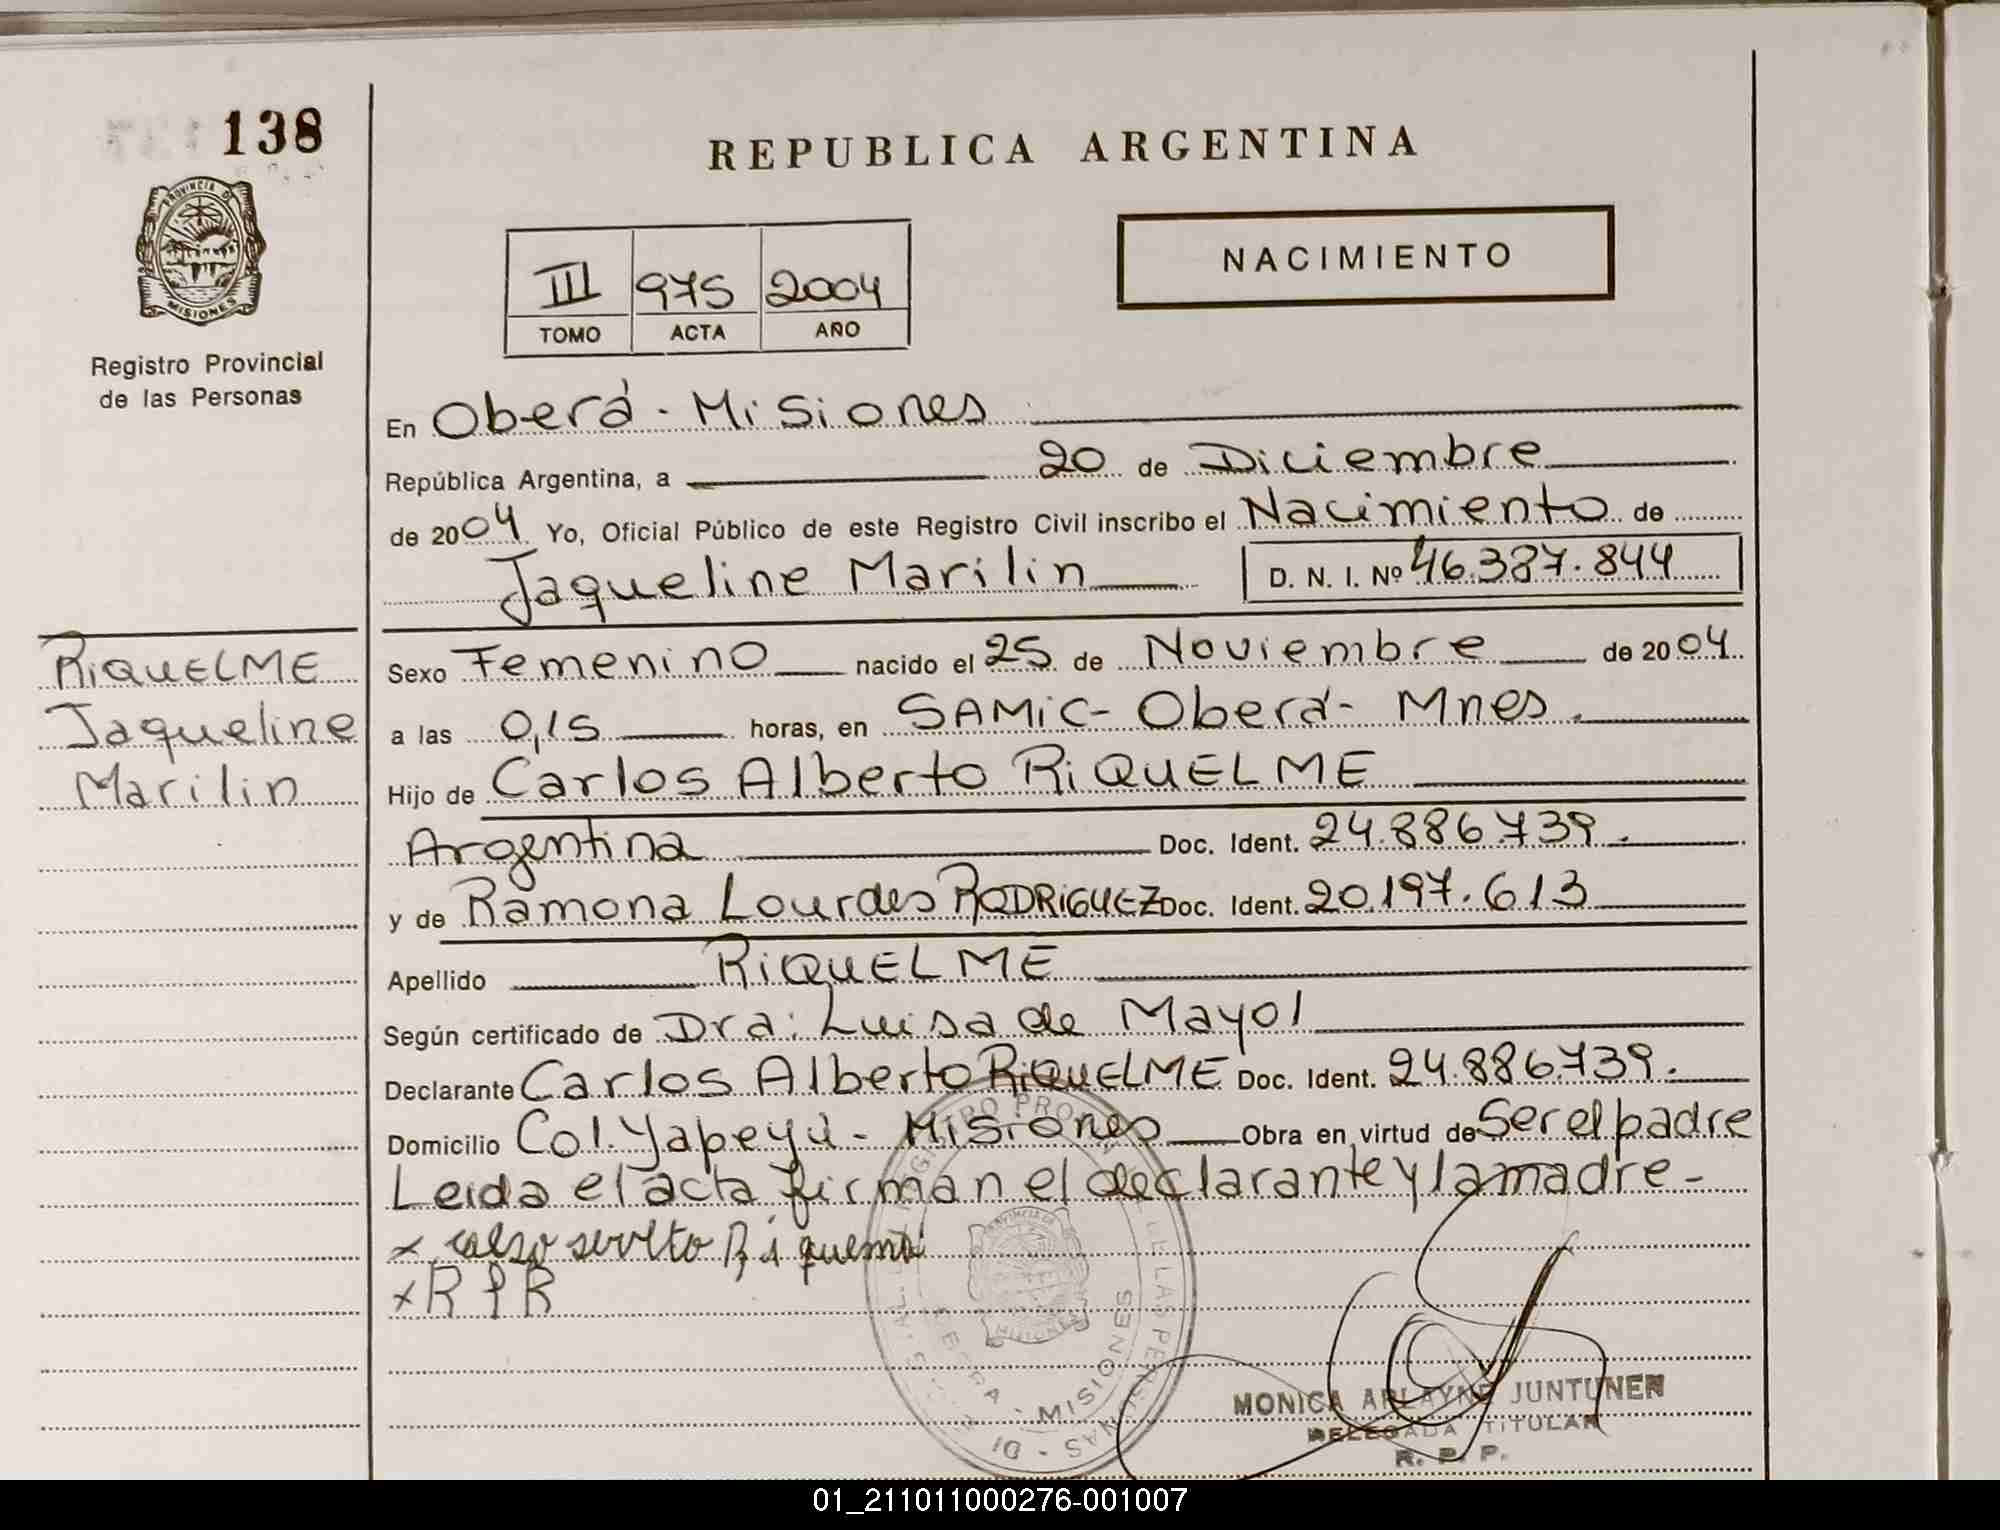 138
PROVINCIA DE
MISIONES
Registro Provincial
de las Personas
REPUBLICA ARGENTINA
NACIMIENTO
III 975 2004
TOMO ACTA AÑO
En Oberá - Misiones
República Argentina, a 20 de Diciembre
de 2004 Yo, Oficial Público de este Registro Civil inscribo el Nacimiento de
Jaqueline Marilin D. N. I. Nº 46.387.844
RIQUELME
Jaqueline
Marilin
Sexo Femenino nacido el 25 de Noviembre de 2004
a las 0,15 horas, en SAMIC - Oberá - Mnes.
Hijo de Carlos Alberto RIQUELME
Argentina Doc. Ident. 24.886.739.
y de Ramona Lourdes RODRIGUEZ Doc. Ident. 20.197.613
Apellido RIQUELME
Según certificado de Dra: Luisa de Mayol
Declarante Carlos Alberto RIQUELME Doc. Ident. 24.886.739.
Domicilio Col. Yapeyú - Misiones Obra en virtud de Ser el padre
Leida el acta firman el declarante y la madre -
x R R
MISIONES
MONICA ARLAYNE JUNTUNEN
DELEGADA TITULAR
R. P. P.
01_211011000276-001007